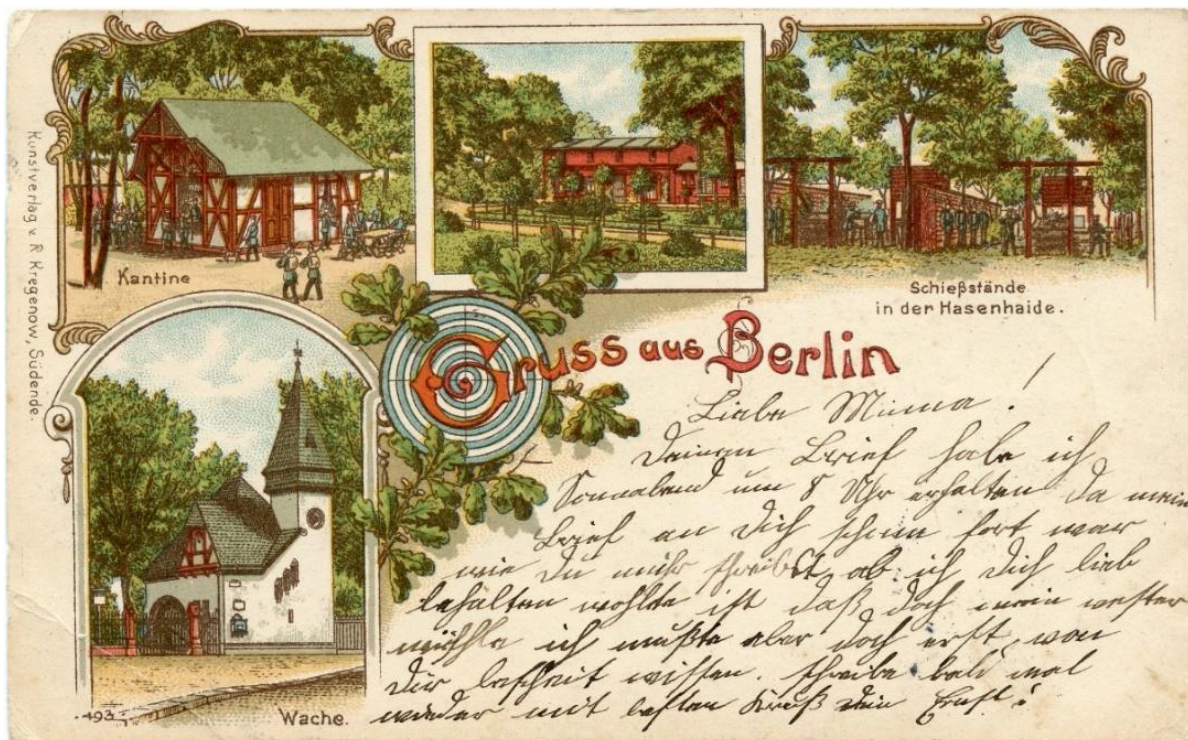 Kunstverlag v. R. Kregenow, Südende.
Kantine
Schießstände
in der Hasenhaide.
Gruss aus Berlin
Liebe Mima!
Deinen Brief habe ich
Sonnabend um 8 Uhr erhalten da mein
Brief an Dich schon fort war
wie Du mihr schreibst ob ich Dich lieb
behalten wohlte ist daß doch mein
ich mußte aber doch erst von
Dir bescheit wissen. schreibe bald mal
wieder mit besten Gruß dein Ernst!
493
Wache.